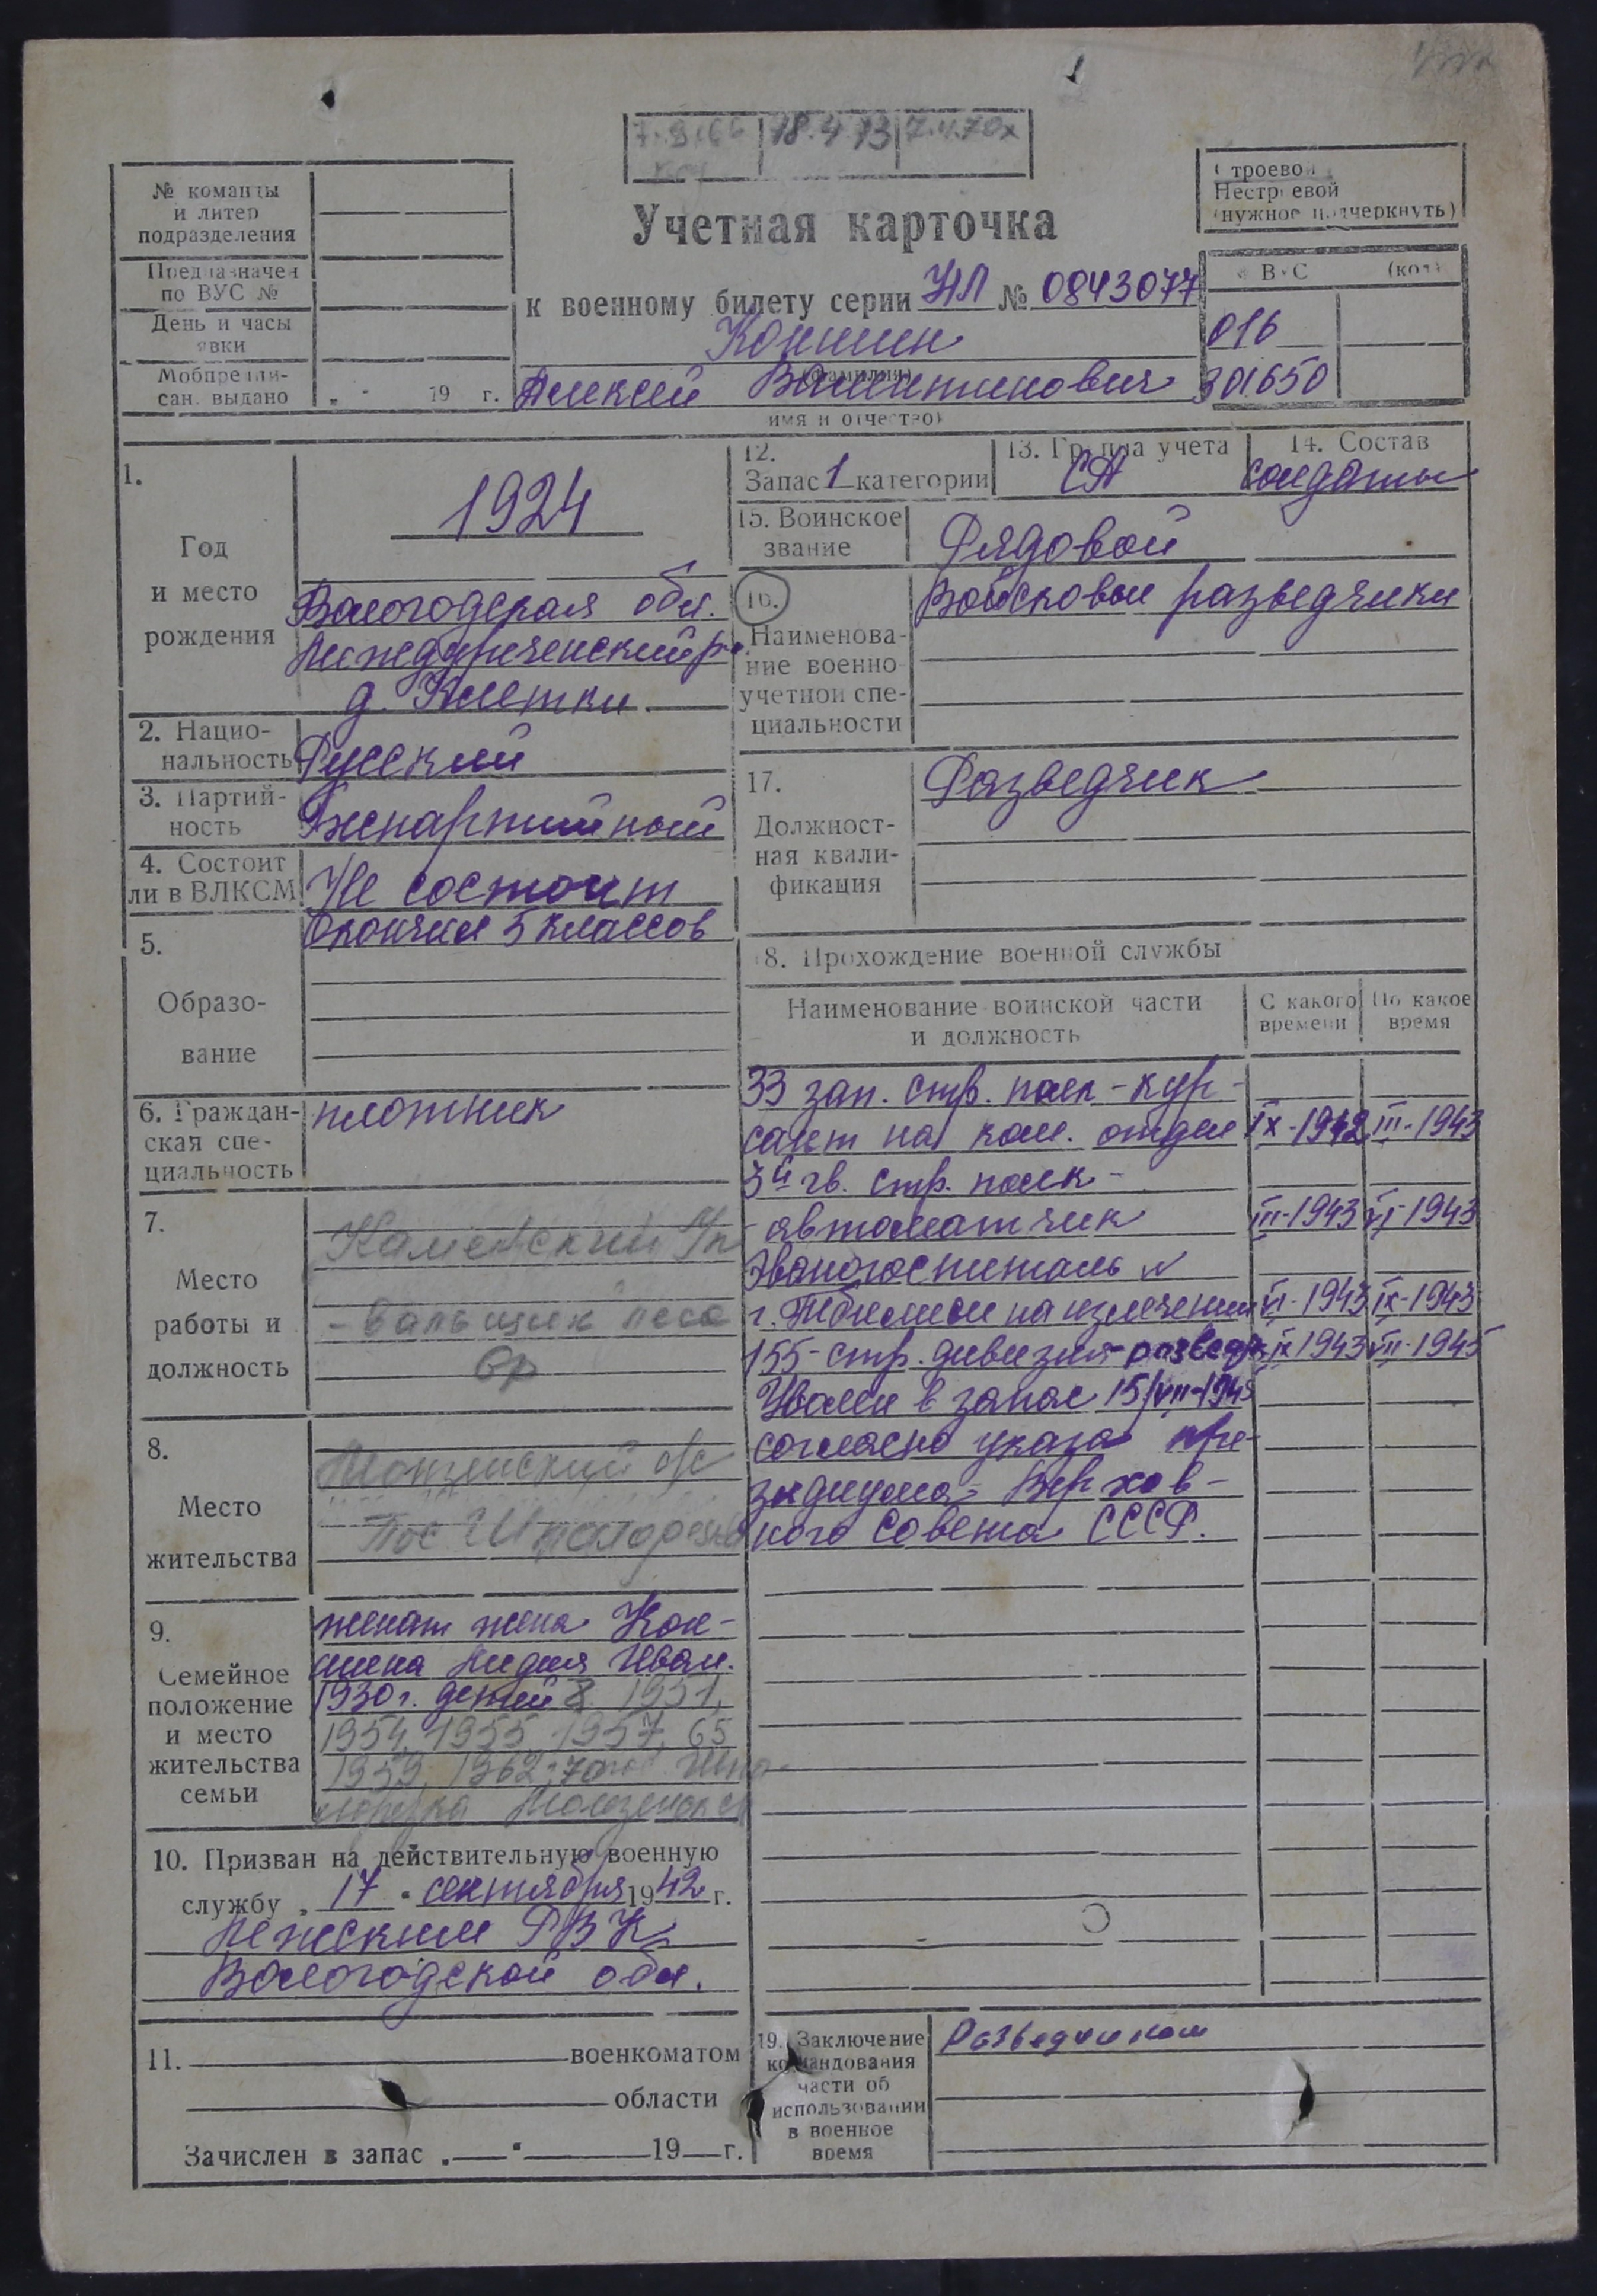 18.4.73
№ команды
и литер
подразделения
Предназначен
по ВУС №
День и часы
явки
Мобпредпи-
сан. выдано
" " 19 г.
Учетная карточка
к военному билету серии НЛ № 0843077
Коншин
(фамилия)
Алексей Валентинович
(имя и отчество)
Строевой
Нестроевой
(нужное подчеркнуть)
ВУС (код)
016
301650
1.
Год
и место
рождения
1924
Вологодская обл.
Междуреченский р-н.
д. Клетки.
2. Нацио-
нальность
Русский
3. Партий-
ность
Беспартийный
4. Состоит
ли в ВЛКСМ
Не состоит
5.
Образо-
вание
Окончил 5 классов
6. Граждан-
ская спе-
циальность
плотник
7.
Место
работы и
должность
Каменский
- вальщик леса
8.
Место
жительства
Монзенский с/с
Пос
9.
Семейное
положение
и место
жительства
семьи
женат жена Кон-
шина Лидия Иван.
1930 г. детей 8 1951,
1954, 1955, 1957, 65
1959, 1962,
10. Призван на действительную военную
службу " 17 " сентября 1942 г.
Межским РВК
Вологодской обл.
11. военкоматом
области
Зачислен в запас " " 19 г.
12.
Запас 1 категории
13. Группа учета
СА
14. Состав
солдаты
15. Воинское
звание
Рядовой
16.
Наименова-
ние военно
учетной спе-
циальности
Войсковые разведчики
17.
Должност-
ная квали-
фикация
Разведчик
18. Прохождение военной службы
Наименование воинской части
и должность
С какого
времени
По какое
время
33 зап. стр. полк - кур-
сант на ком. отдел IX-1942 III-1943
3й гв. стр. полк -
автоматчик III-1943 VI-1943
Эвакогоспиталь
г. Тбилиси на излечении VI-1943 IX-1943
155 - стр. дивизия - разведч. IX 1943 VII-1945
Уволен в запас 15/VII-1945
согласно указа пре-
зидиума Верхов-
ного Совета СССР.
19. Заключение
командования
части об
использовании
в военное
время
Разведчиком